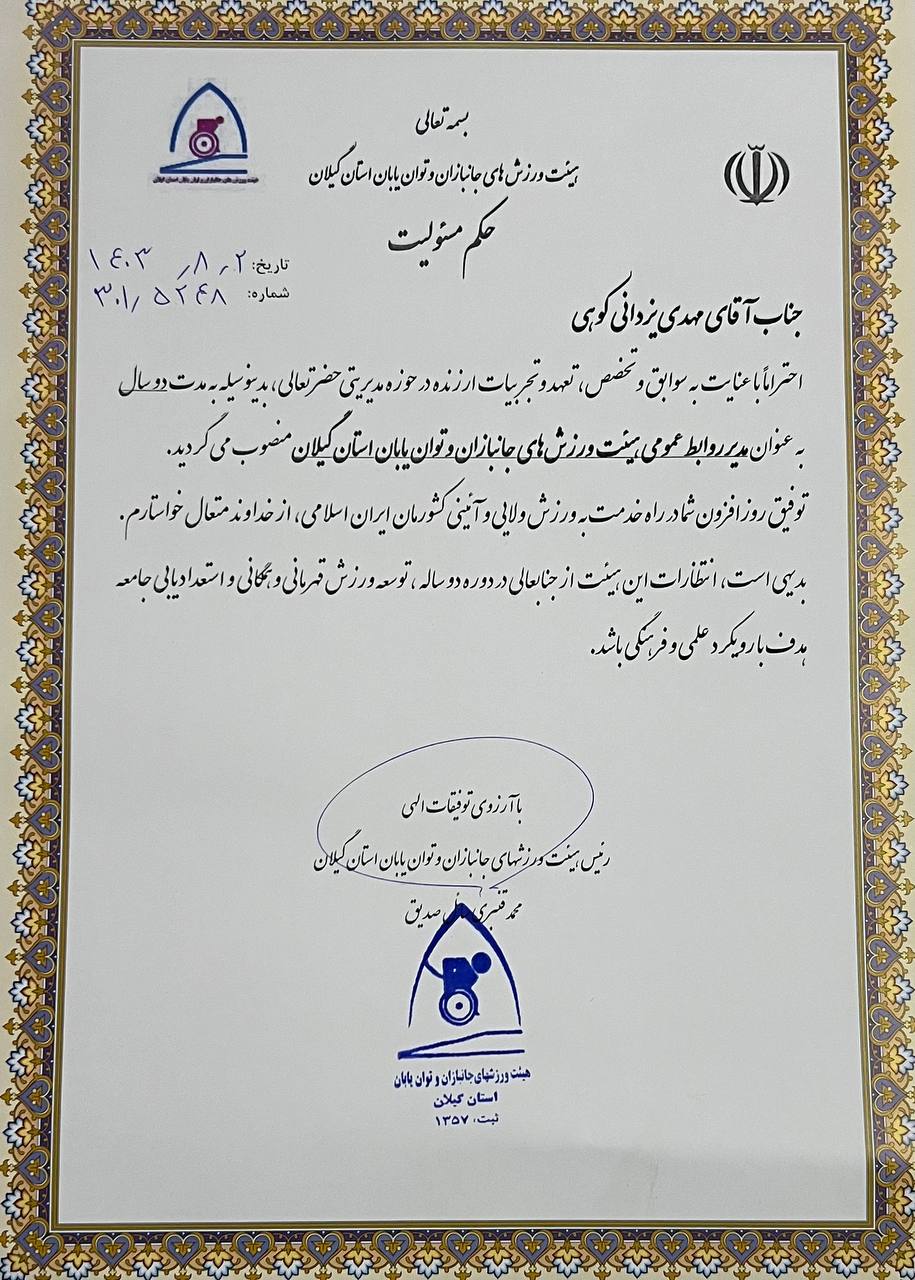 بسمه تعالی
هیئت ورزش های جانبازان و توان یابان استان گیلان
حکم مسئولیت
تاریخ: ۱۴۰۳/۸/۲
شماره: ۳۰۱/۵۲۴۸
جناب آقای مهدی یزدانی کوهی
احتراماً با عنایت به سوابق و تخصص، تعهد و تجربیات ارزنده در حوزه مدیریتی حضرتعالی، بدینوسیله به مدت دو سال
به عنوان مدیر روابط عمومی هیئت ورزش های جانبازان و توان یابان استان گیلان منصوب می گردید.
توفیق روز افزون شما در راه خدمت به ورزش ولایی و آئینی کشورمان ایران اسلامی، از خداوند متعال خواستارم.
بدیهی است، انتظارات این هیئت از جنابعالی در دوره دو ساله، توسعه ورزش قهرمانی و همگانی و استعدادیابی جامعه
هدف با رویکرد علمی و فرهنگی باشد.
با آرزوی توفیقات الهی
رئیس هیئت ورزشهای جانبازان و توان یابان استان گیلان
محمد قنبری صدیق
هیئت ورزشهای جانبازان و توان یابان
استان گیلان
ثبت، ۱۳۵۷